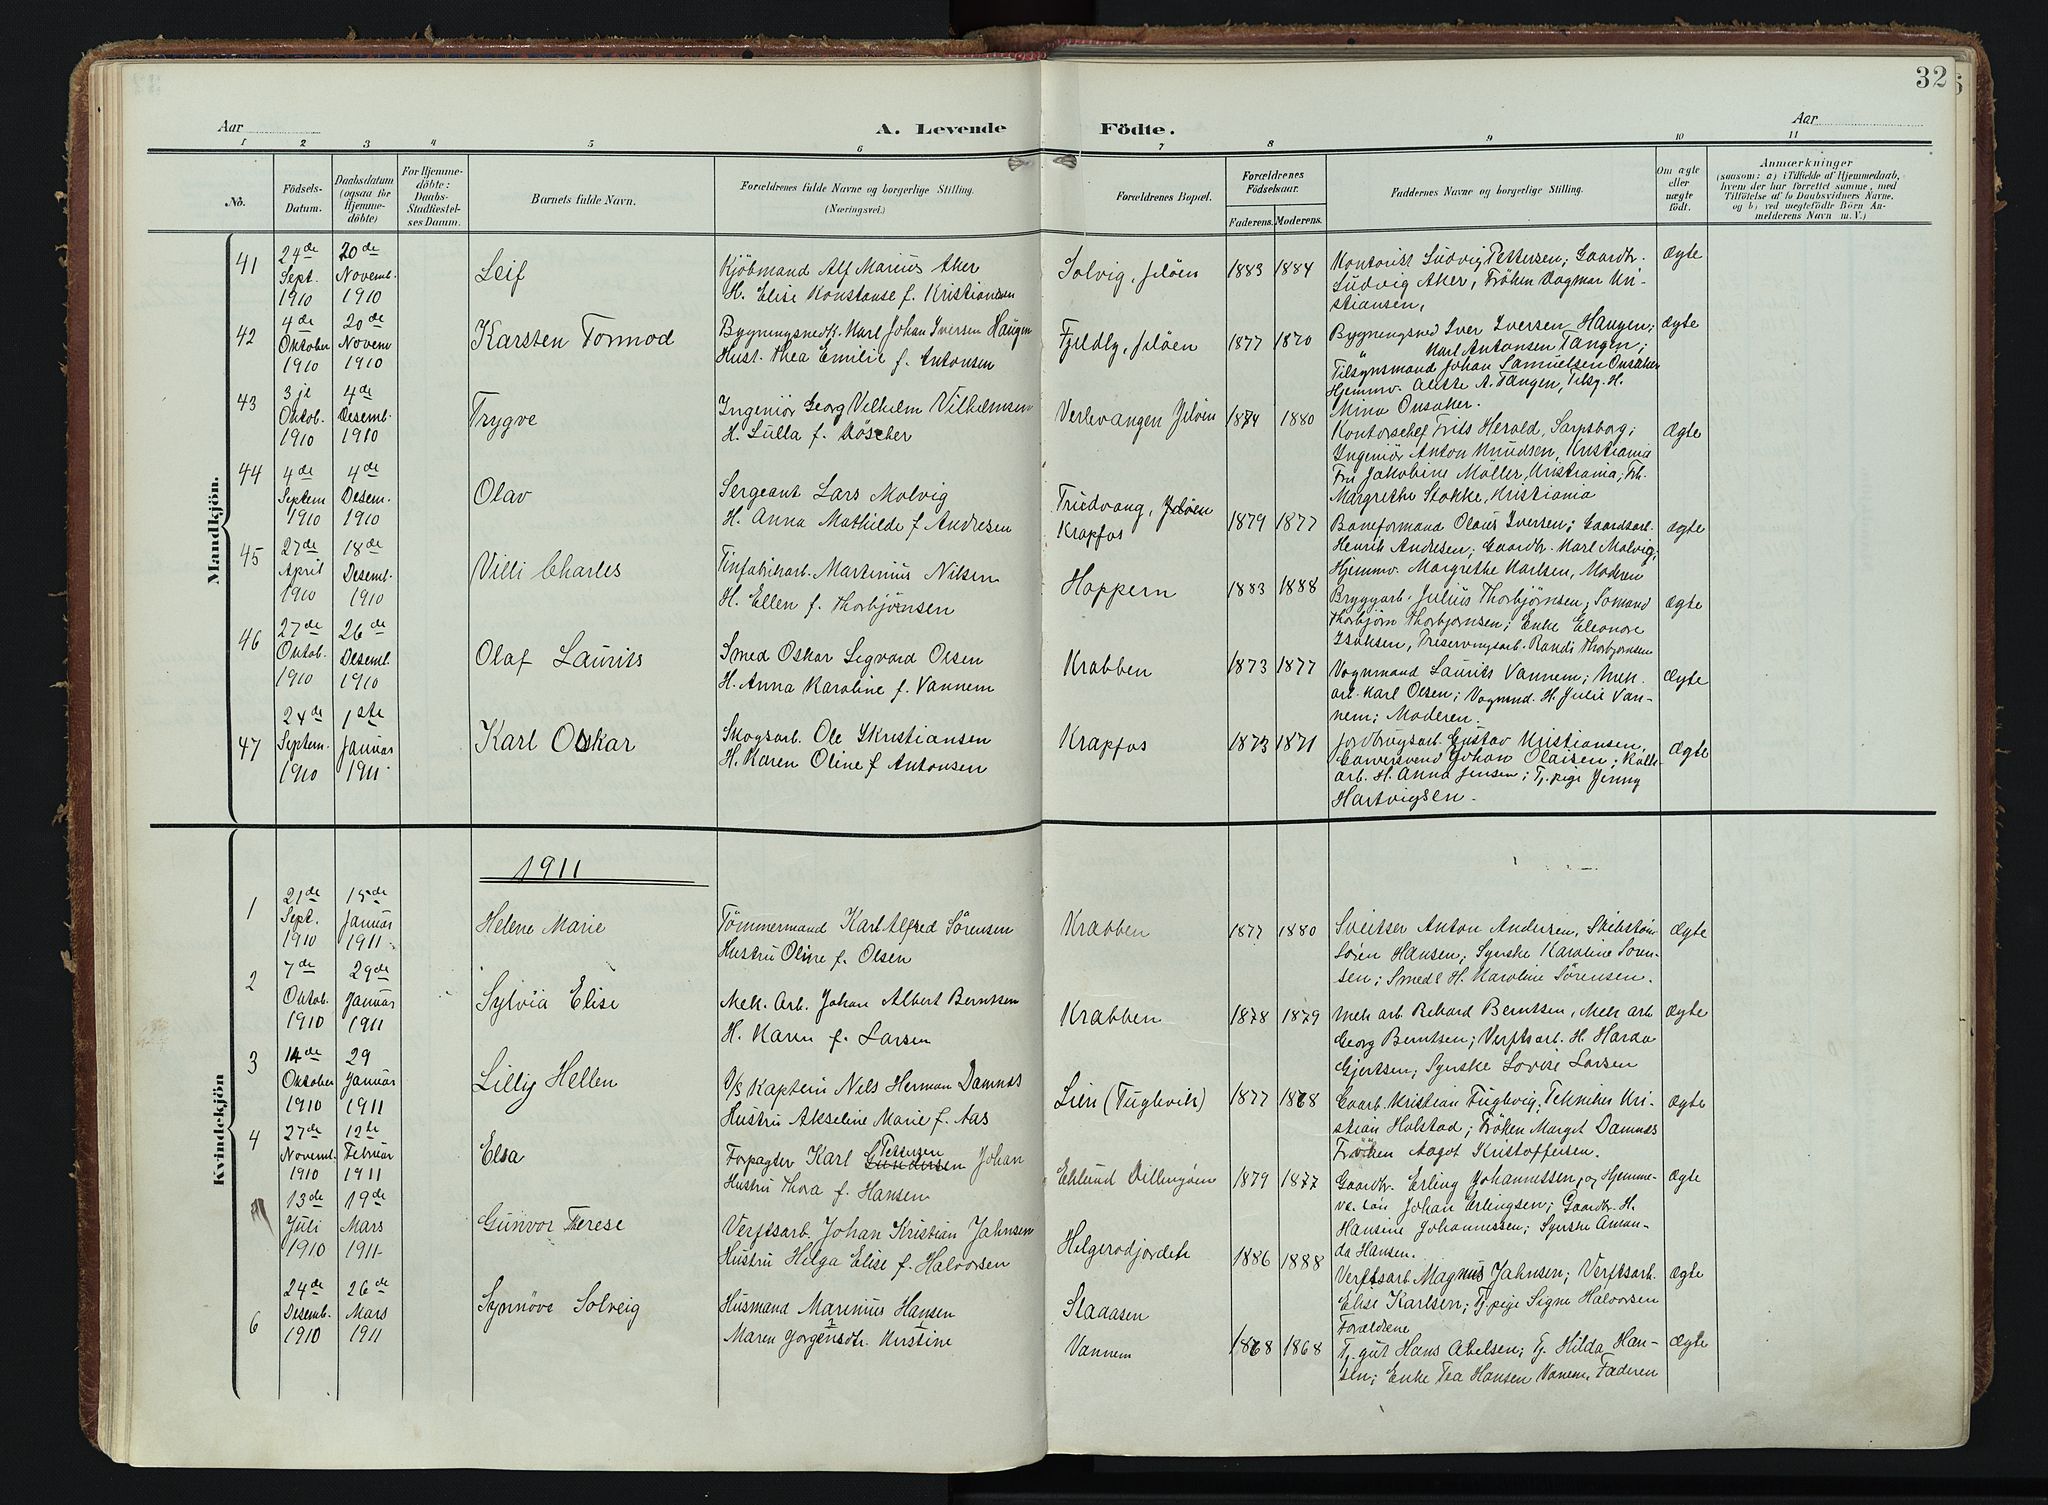 32
Aar
A. Levende Födte.
Aar
1 2 3 4 5 6 7 8 9 10 11
No.
Födsels-Datum.
Daabsdatum (ogsaa for Hjemme-döbte)
For Hjemme-döbte: Daabs-Stadfæstel-ses Datum.
Barnets fulde Navn.
Forældrenes fulde Navne og borgerlige Stilling. (Næringsvei.)
Forældrenes Bopæl.
Forældrenes Födselsaar.
Faderens. Moderens.
Faddernes Navne og borgerlige Stilling.
Om ægte eller uægte födt.
Anmærkninger
(saasom: a) i Tilfælde af Hjemmedaab,
hvem der har forrettet samme, med
Tilföielse af to Daabsvidners Navne,
og b) ved uægtefödte Börn An-
melderens Navn m. V.)
Mandkjön.
41 24de Sept. 1910 20de Novemb. 1910 Leif
Kjöbmand Alf Marius Aker
H. Elise Konstanse f. Kristiansen
Solvig, Jelöen 1883 1884
Kontorist Ludvig Pettersen; Gaardbr.
Ludvig Aker, Fröken Dagmar Kri-
stiansen,
Ægte
42 4de Oktober 1910 20de Novem 1910 Karsten Tormod
Bygningsnedk. Karl Johan Iversen Haugen
Hust. Thea Emilie f. Antonsen
Fjeldly, Jelöen 1877 1870
Bygningsned Iver Iversen Haugen;
Karl Antonsen Tangen;
Tilsynsmand Johan Samuelsen Onsaker
Hjemmv. Aletté A. Tangen, Tilsy. H.
Mina Onsaker.
Ægte
43 3je Oktob. 1910 4de Desemb. 1910 Trygve
Ingeniör Georg Vilhelm Vilhelmsen
H. Lulla f. Röscher
Verlevangen Jelöen 1874 1880
Kontorschef Frits Herold, Sarpsborg;
Ingeniör Anton Knudsen, Kristiania
Fru Jakobine Möller, Kristiania; Frk.
Margrethe Stokke, Kristiania
Ægte
44 4de Septem 1910 4de Desem. 1910 Olav
Sergeant Lars Molvig
H. Anna Mathilde f. Andresen
Fredvang, Jelöen
Krapfos 1879 1877
Baneformand Olaus Iversen; Gaardsarb.
Henrik Andresen; Gaardbr. Karl Molvig;
Hjemmv. Margrethe Karlsen, Moderen
Ægte
45 27de April 1910 18de Desemb. 1910 Villi Charles
Tinfabrikarb. Martinius Nilsen
H. Ellen f. Thorbjörnsen
Hoppern 1883 1888
Bryggarb. Julius Thorbjörnsen; Sömand
Thorbjörn Thorbjörnsen; Enke Eleonore
Isaksen, Preservingsarb. Randi Thorbjörnsen
Ægte
46 27de Oktob. 1910 26de Desemb. 1910 Olaf Laurits
Smed Oskar Sigvard Olsen
H. Anna Karoline f. Vannem
Krabben 1873 1877
Vognmand Laurits Vannem; Mek.
arb. Karl Olsen; Vognmd. H. Julie Van-
nem; Moderen.
Ægte
47 24de Septem. 1910 1ste Januar 1911 Karl Oskar
Skogsarb. Ole Kristiansen
H. Karen Oline f Antonsen
Krapfos 1873 1871
Jordbrugsarb. Gustav Kristiansen,
Garversvend Johan Olaisen; Kulle-
arb. H. Anna Jensen; Tj. pige Jenny
Hartvigsen.
Ægte
Kvindekjön
1911
1 21de Sept. 1910 15de Januar 1911. Helene Marie
Tömmermand Karl Alfred Sörensen
Hustru Oline f. Olsen
Krabben 1877 1880
Sveitser Anton Andersen,
Sören Hansen; Syerske Karoline Sören-
sen; Smeds H. Karoline Sörensen.
Ægte
2 7de Oktob. 1910 29de Januar 1911 Sylvia Elise
Mek. Arb. Johan Albert Berntsen
H. Karen f. Larsen
Krabben 1878 1879
Mek arb Rikard Berntsen, Mek arb
Georg Berntsen; Verftsarb. H. Harda
Gjertsen; Syerske Lovise Larsen
Ægte
3 14de Oktober 1910 29 Januar 1911 Lilly Hellen
D/s Kaptein Nils Herman Damnæs
Hustru Akseline Marie f. Aas
Lien (Fuglevik) 1877 1868
Gaarb. Kristian Fuglevig; Tekniker Kri-
stian Holstad; Fröken Margit Damnæs
Fröken Aagot Kristoffersen.
Ægte
4 27de Novemb. 1910 12te Februar 1911 Elsa
Forpagter Karl Pettersen Gundersen Johan
Hustru Thora f. Hansen
Eklund Dillingöen 1879 1877
Gaardbr. Erling Johannessen, og Hjemme-
væ. sön Johan Erlingsen; Gaardbr. H.
Hansine Johannessen; Syerske Aman-
da Hansen.
Ægte
13de Juli 1910 19de Mars 1911. Gunvor Therese
Verftsarb. Johan Kristian Jahnsen
Hustru Helga Elise f. Halvorsen
Helgerødjordet 1886 1888
Verftsarb Magnus Jahnsen; Verftsarb.
Elise Karlsen; Tj. pige Signe Halvorsen
Forældrene
Ægte
6 24de Desemb. 1910 26de Mars 1911 Synnöve Solveig
Husmand Marinius Hansen
Maren Jørgensdtr. Kirstine
Staaasen
Vannem 1868 1868
Tj. gut Hans Abelsen; Tj. Hilda Han-
sen; Enke Tea Hansen Vanem. Faderen
Ægte